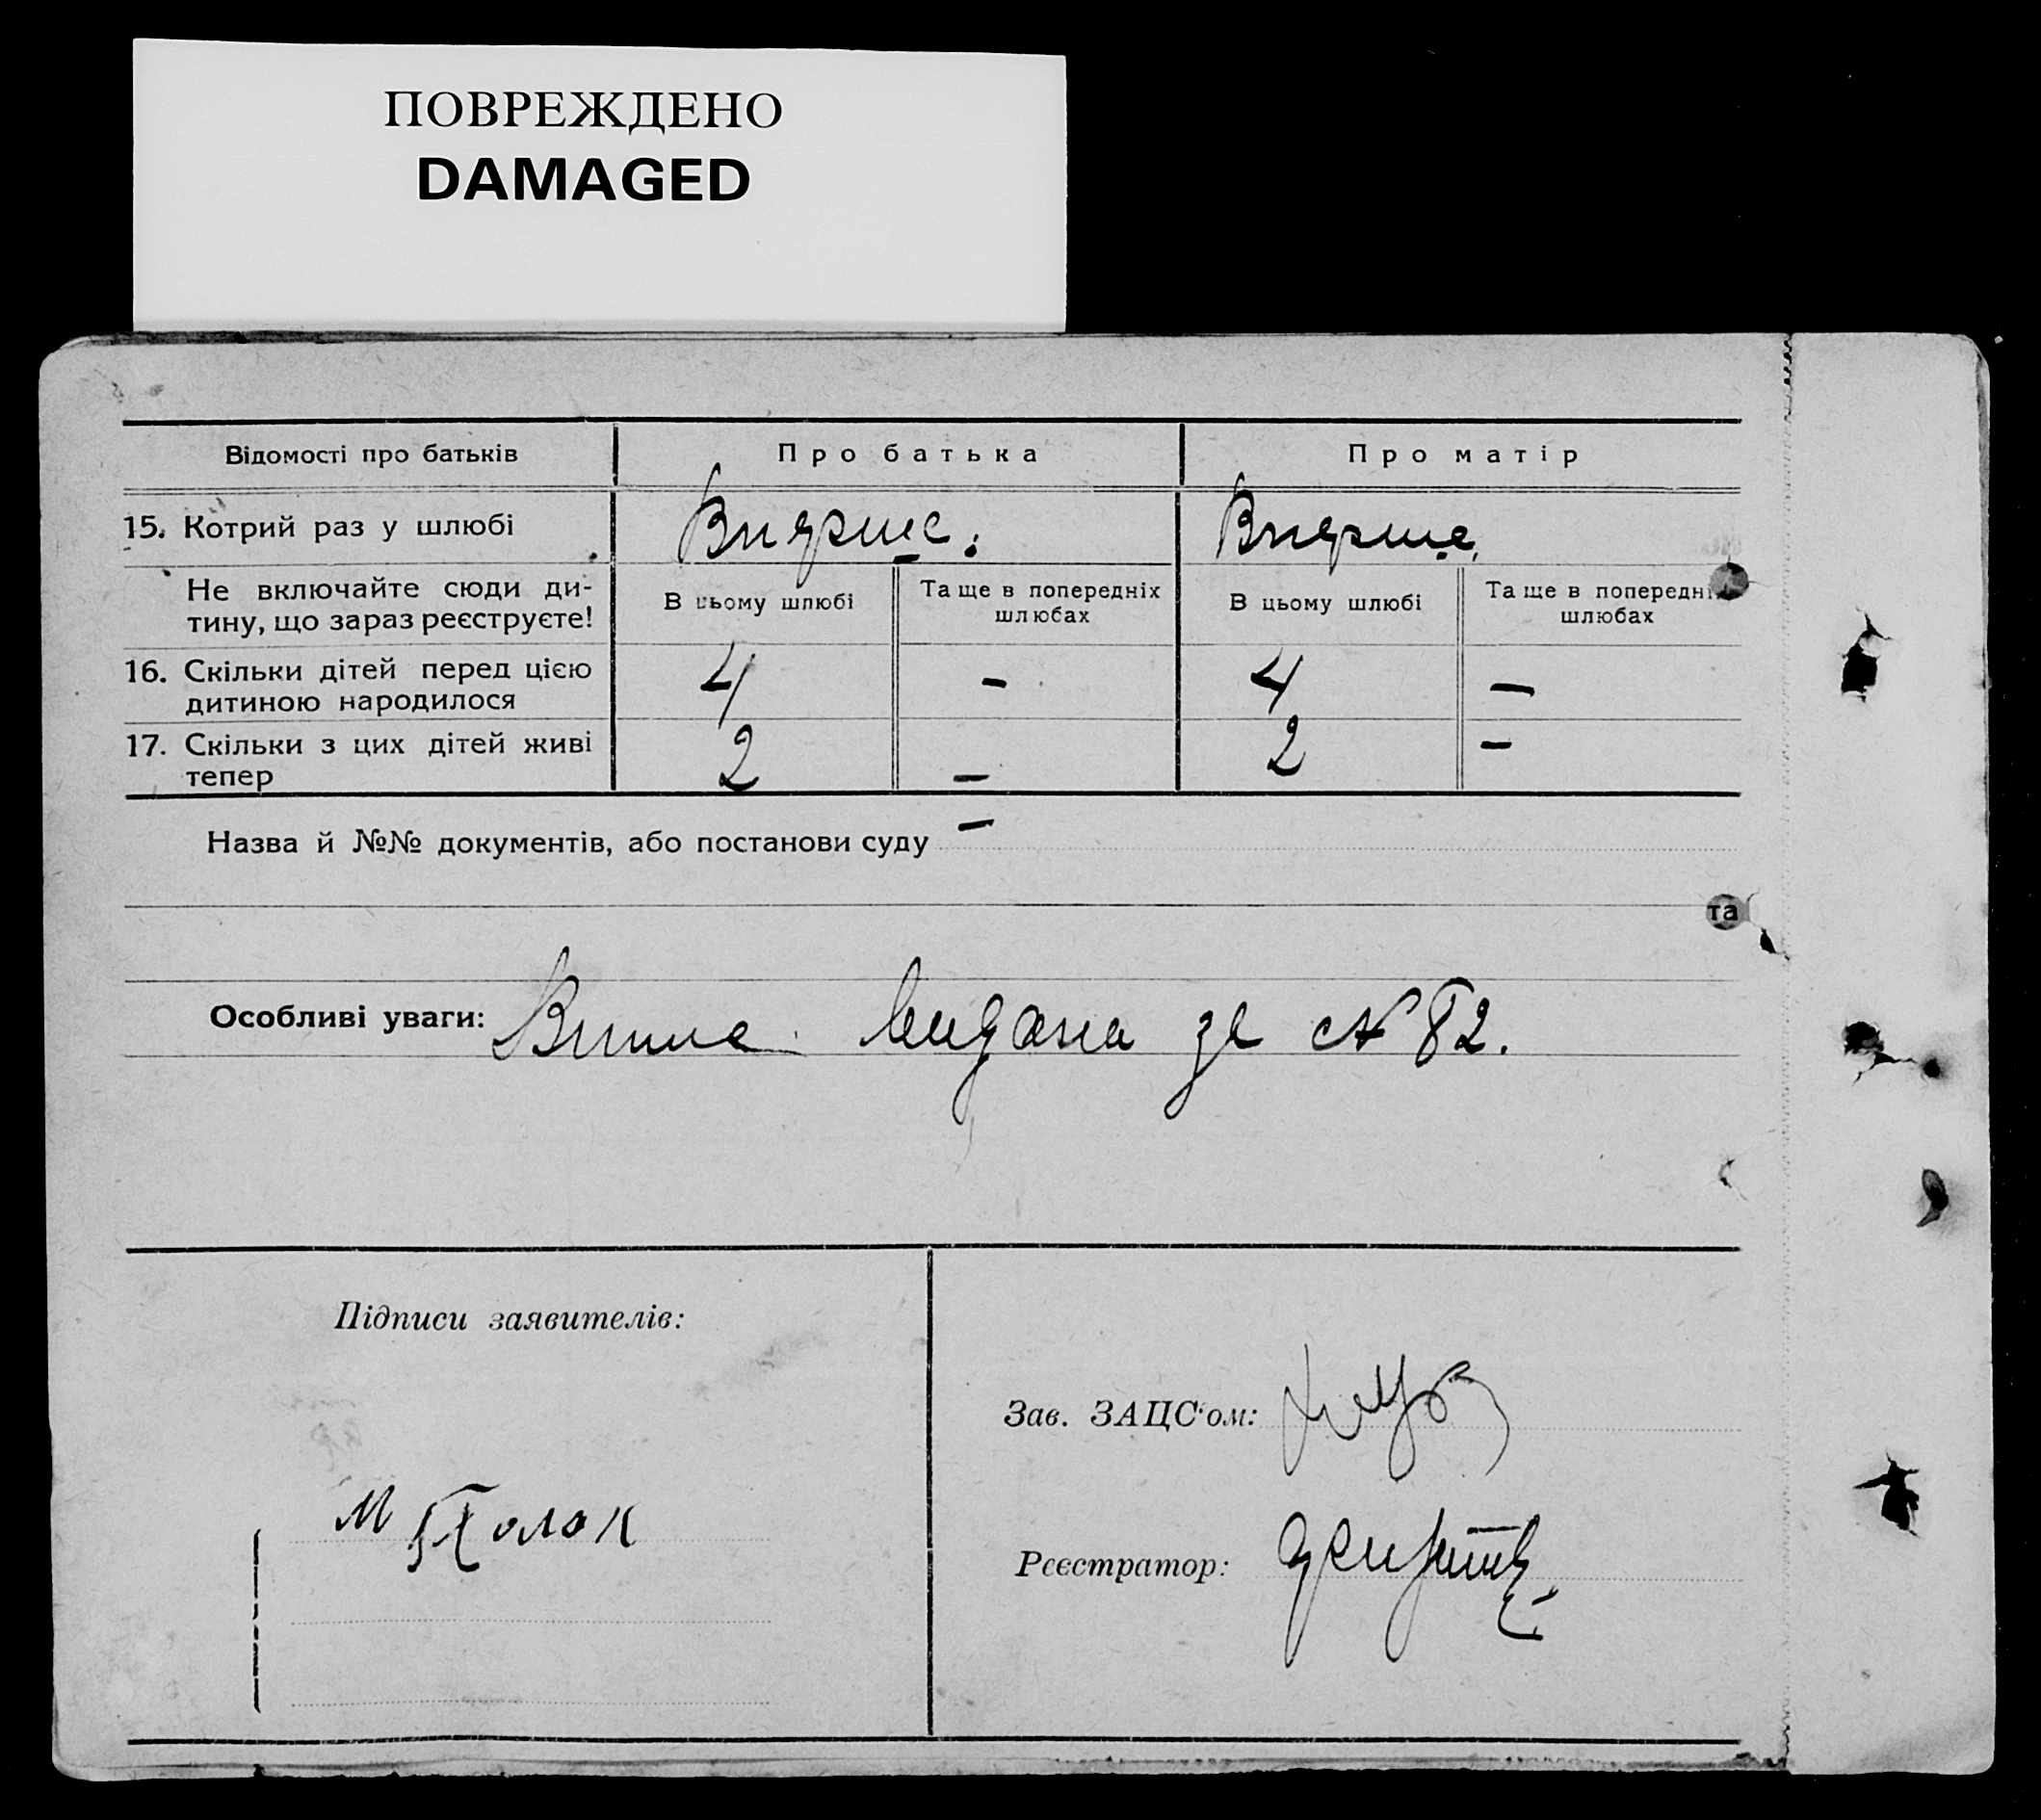 ПОВРЕЖДЕНО
DAMAGED
Відомості про батьків
Про батька
Про матір
15. Котрий раз у шлюбі
Вперше.
Вперше.
Не включайте сюди ди-
тину, що зараз реєструєте!
В цьому шлюбі
Та ще в попередніх
шлюбах
В цьому шлюбі
Та ще в попередні
шлюбах
16. Скільки дітей перед цією
дитиною народилося
4
-
4
-
17. Скільки з цих дітей живі
тепер
2
-
2
-
Назва й №№ документів, або постанови суду
-
та
Особливі уваги: видана за № 82.
Підписи заявителів:
М Полак
Зав. ЗАЦС'ом:
Реєстратор: